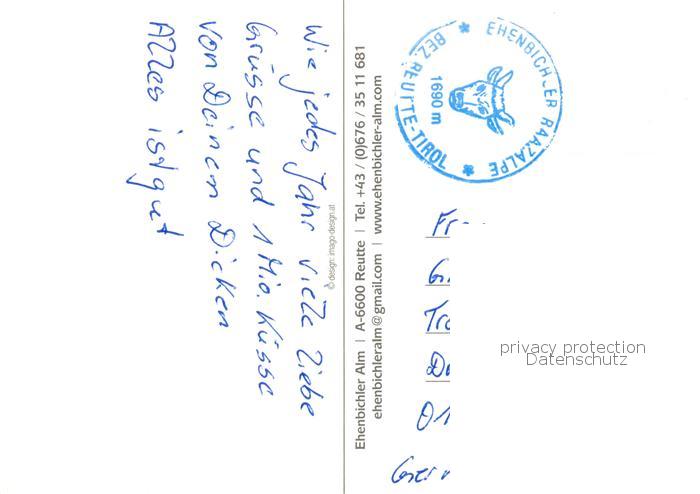 Wie jedes Jahr viele liebe
Grüsse und 1 Mio. Küsse
von Deinem Dicken
Alles ist gut
© design: imago-design.at
Ehenbichler Alm | A-6600 Reutte | Tel. +43 / (0)676 / 35 11 681
ehenbichleralm@gmail.com | www.ehenbichler-alm.com
EHENBICHLER RAAZALPE
BEZ. REUTTE-TIROL
1690 m
Fr
G
Tr
D
privacy protection
Datenschutz